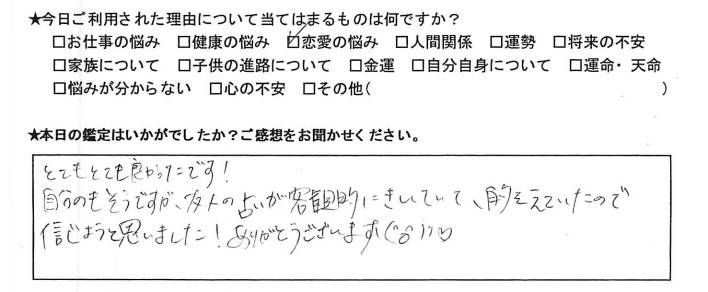 ★今日ご利用された理由について当てはまるものは何ですか？
□お仕事の悩み □健康の悩み ☑恋愛の悩み □人間関係 □運勢 □将来の不安
□家族について □子供の進路について □金運 □自分自身について □運命・天命
□悩みが分からない □心の不安 □その他( )
★本日の鑑定はいかがでしたか？ご感想をお聞かせください。
とてもとても良かったです！
自分のもそうですが、友人の占いが客観的にきいていて、当たっていたので
信じようと思いました！ありがとうございます